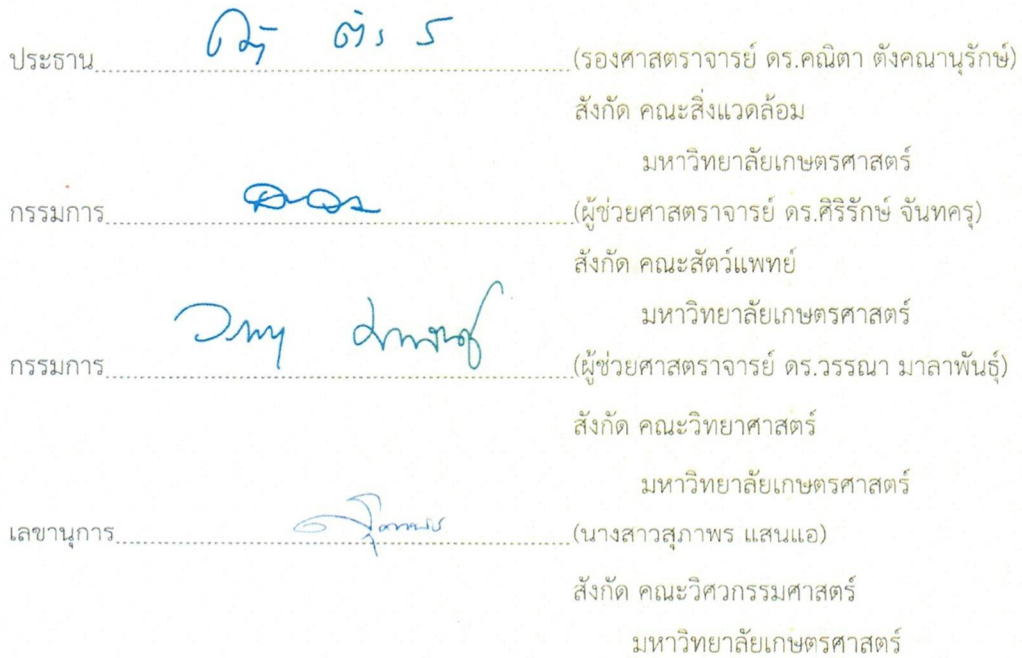 ประธาน................................................(รองศาสตราจารย์ ดร.คณิตา ตังคณานุรักษ์)
สังกัด คณะสิ่งแวดล้อม
มหาวิทยาลัยเกษตรศาสตร์
กรรมการ................................................(ผู้ช่วยศาสตราจารย์ ดร.ศิริรักษ์ จันทครุ)
สังกัด คณะสัตว์แพทย์
มหาวิทยาลัยเกษตรศาสตร์
กรรมการ................................................(ผู้ช่วยศาสตราจารย์ ดร.วรรณา มาลาพันธุ์)
สังกัด คณะวิทยาศาสตร์
มหาวิทยาลัยเกษตรศาสตร์
เลขานุการ................................................(นางสาวสุภาพร แสนแอ)
สังกัด คณะวิศวกรรมศาสตร์
มหาวิทยาลัยเกษตรศาสตร์